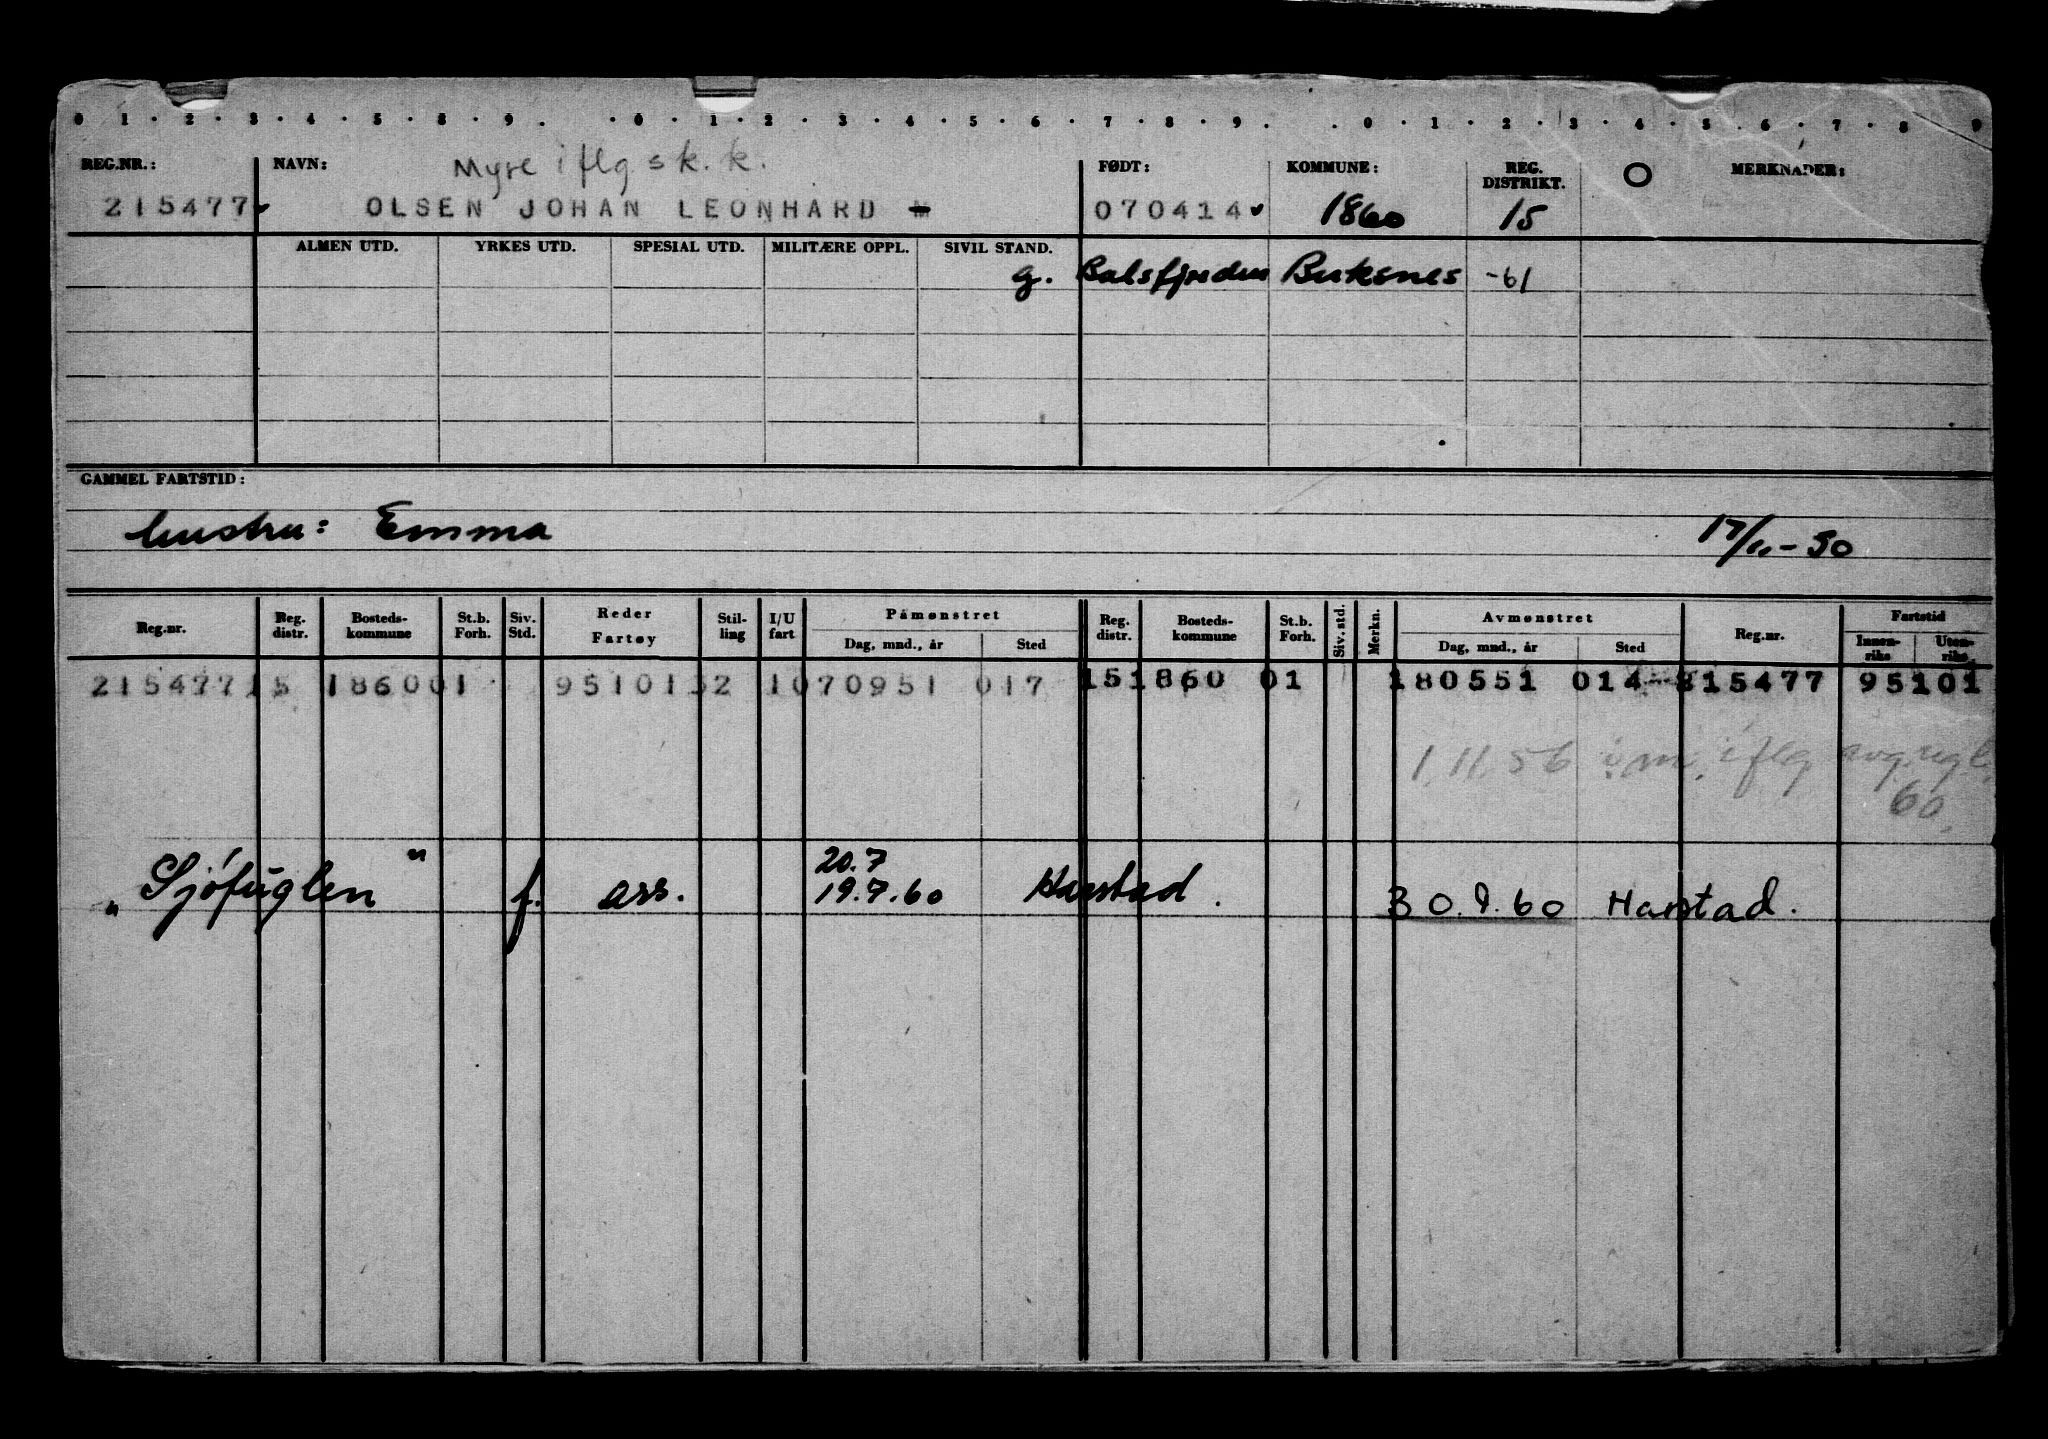 0 1 · 2 · 3 · 4 · 5 · 8 · 9 . · 0 · 1 · 2 · 3 · 4 · 5 · 6 · 7 · 8 · 9 . . 0 · 1 · 2 · 3 · 4 · 5 · 6 · 7 · 8 · 9
REG.NR.: NAVN: Myre iflg sk.k. FØDT: KOMMUNE: REG. DISTRIKT. O MERKNADER:
215477 OLSEN JOHAN LEONHARD 070414 1860 15
ALMEN UTD. YRKES UTD. SPESIAL UTD. MILITÆRE OPPL. SIVIL STAND.
g. Balsfjorden Buksnes -61
GAMMEL FARTSTID:
hustru: Emma 17/11-50
Reg.nr. Reg. distr. Bosteds-kommune St.b. Forh. Siv. Std. Reder Fartøy Stil-ling I/U fart Påmønstret Dag, mnd., år Sted Reg. distr. Bosteds-kommune St.b. Forh. Siv. std. Merkn. Avmønstret Dag, mnd., år Sted Reg.nr. Fartstid Innen-riks Uten-riks
215477 15 1860 01 95101 52 1 070951 017 15 1860 01 180551 014 215477 95101
1.11.56 i.m. iflg avg.
60.
"Sjøfuglen" f. ass. 20.7
19.7.60 Harstad. 30.9.60 Harstad.